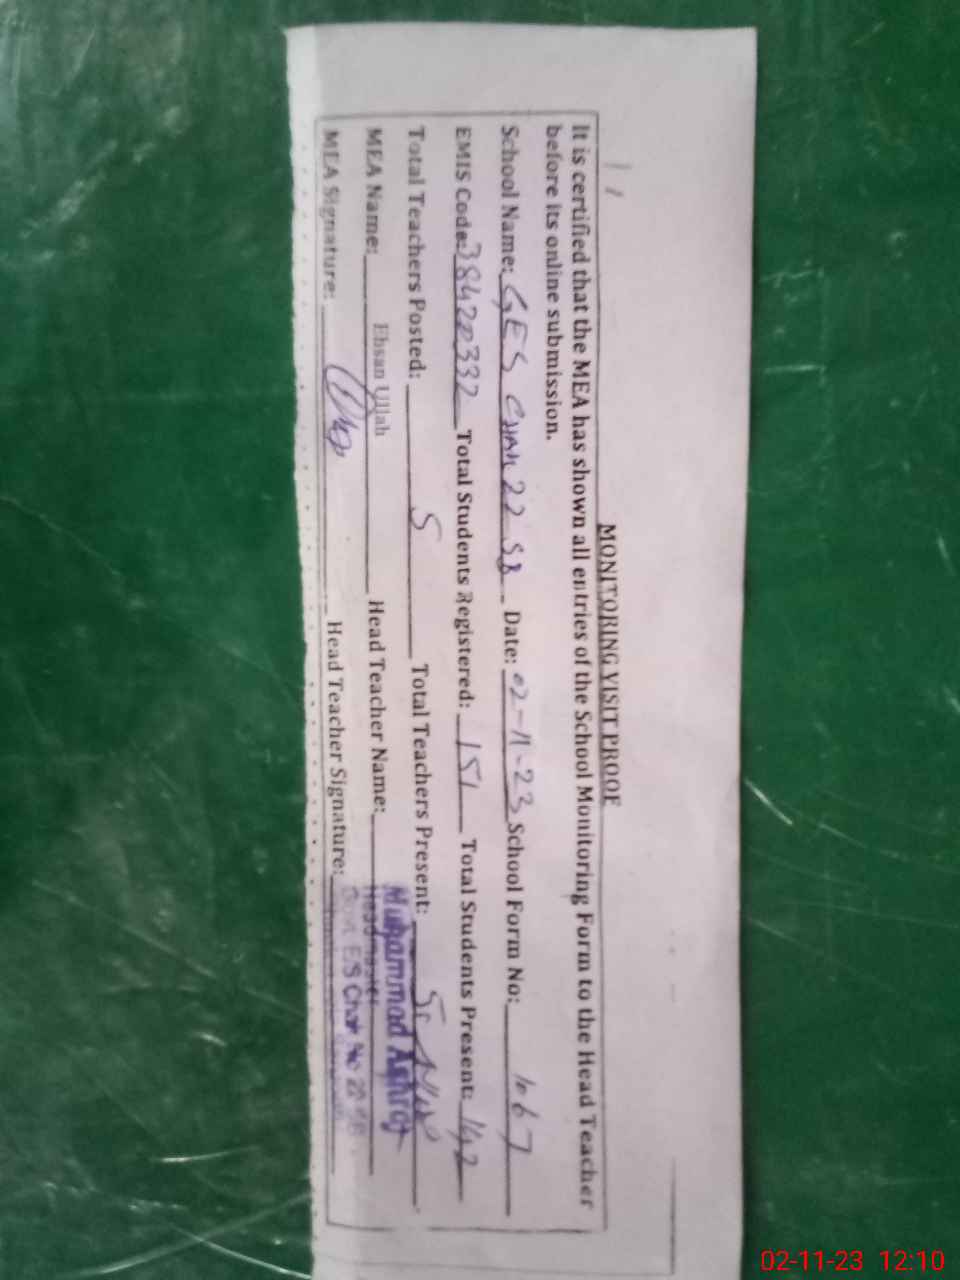 MONITORING VISIT PROOF
It is certified that the MEA has shown all entries of the School Monitoring Form to the Head Teacher
before its online submission.
School Name: GES CHAK 22 SB Date: 02-11-23 School Form No: 1067
EMIS Code: 38420332 Total Students Registered: 151 Total Students Present: 142
Total Teachers Posted: 5 Total Teachers Present: 5
MEA Name: Ehsan Ullah Head Teacher Name: Muhammad Ashraf
Headmaster
MEA Signature: Head Teacher Signature: Govt. E/S Chak No 22 SB
02-11-23 12:10